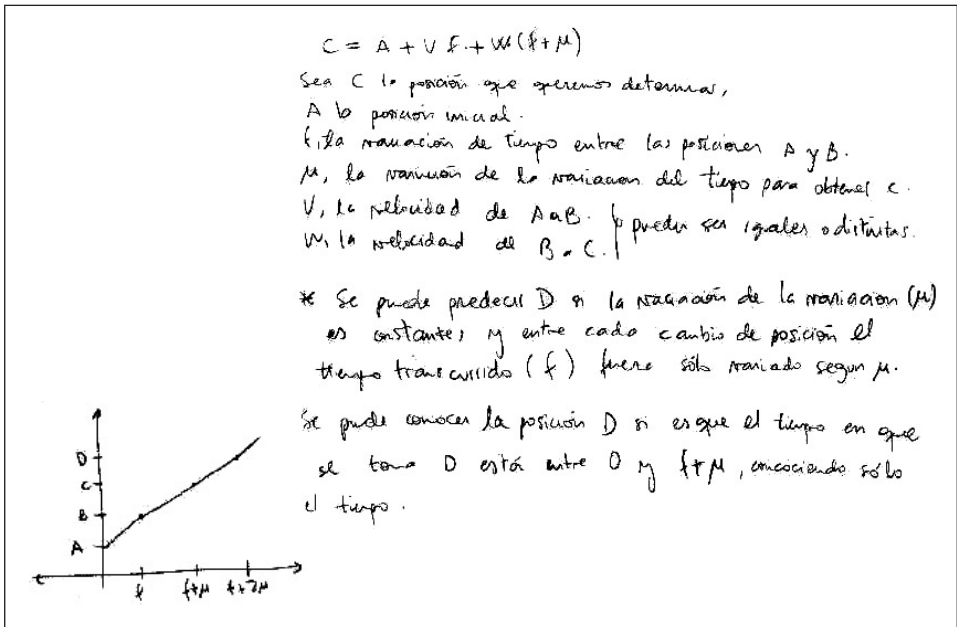 C = A + V f. + W (f + μ)
Sea C la posición que queremos determinar,
A la posición inicial.
f, la variación de tiempo entre las posiciones A y B.
μ, la variación de la variacion del tiempo para obtener c.
V, la velocidad de A a B.
W, la velocidad de B a C.
pueden ser iguales o distintas.
* Se puede predecir D si la variación de la variacion (μ)
es constante, y entre cada cambio de posición el
tiempo transcurrido (f) fuere sólo variado segun μ.
Se puede conocer la posición D si es que el tiempo en que
se toma D está entre 0 y f+μ, conociendo sólo
el tiempo.
D
C
B
A
f f+μ f+2μ